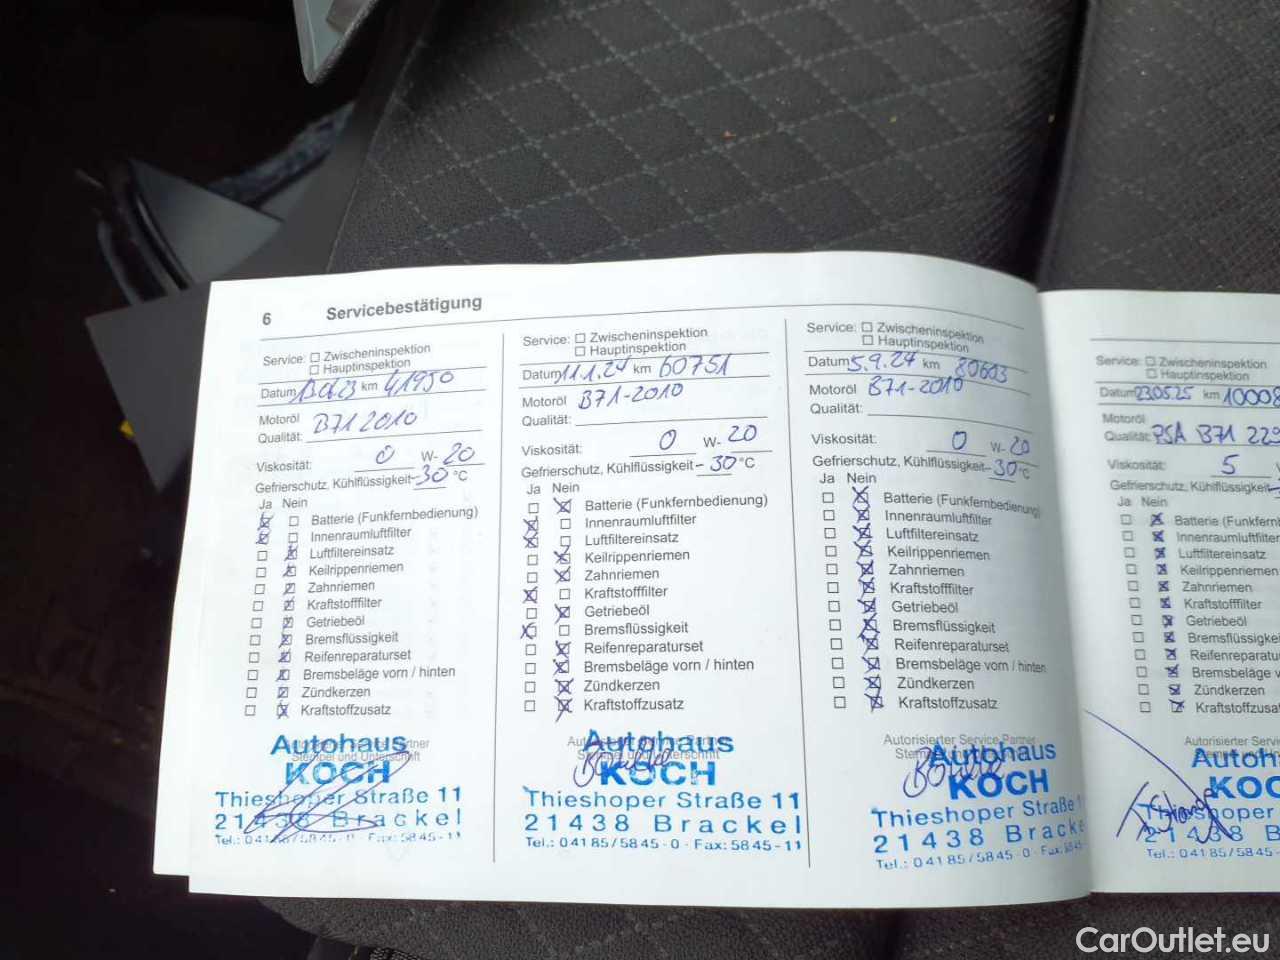 6 Servicebestätigung
Service: Zwischeninspektion
Hauptinspektion
Datum km 41950
Motoröl
Qualität: B71 2010
Viskosität: 0 W- 20
Gefrierschutz, Kühlflüssigkeit -30 °C
Ja Nein
Batterie (Funkfernbedienung)
Innenraumluftfilter
Luftfiltereinsatz
Keilrippenriemen
Zahnriemen
Kraftstofffilter
Getriebeöl
Bremsflüssigkeit
Reifenreparaturset
Bremsbeläge vorn / hinten
Zündkerzen
Kraftstoffzusatz
Autorisierter Service Partner
Stempel und Unterschrift
Autohaus
KOCH
Thieshoper Straße 11
21438 Brackel
Tel.: 04185/5845-0 · Fax: 5845-11
Service: Zwischeninspektion
Hauptinspektion
Datum 11.1.24 km 60751
Motoröl B71-2010
Qualität:
Viskosität: 0 W- 20
Gefrierschutz, Kühlflüssigkeit -30 °C
Ja Nein
Batterie (Funkfernbedienung)
Innenraumluftfilter
Luftfiltereinsatz
Keilrippenriemen
Zahnriemen
Kraftstofffilter
Getriebeöl
Bremsflüssigkeit
Reifenreparaturset
Bremsbeläge vorn / hinten
Zündkerzen
Kraftstoffzusatz
Autohaus
KOCH
Thieshoper Straße 11
21438 Brackel
Tel.: 04185/5845-0 · Fax: 5845-11
Service: Zwischeninspektion
Hauptinspektion
Datum 5.9.24 km 80603
Motoröl B71-2010
Qualität:
Viskosität: 0 W- 20
Gefrierschutz, Kühlflüssigkeit -30 °C
Ja Nein
Batterie (Funkfernbedienung)
Innenraumluftfilter
Luftfiltereinsatz
Keilrippenriemen
Zahnriemen
Kraftstofffilter
Getriebeöl
Bremsflüssigkeit
Reifenreparaturset
Bremsbeläge vorn / hinten
Zündkerzen
Kraftstoffzusatz
Autorisierter Service Partner
Autohaus
KOCH
Thieshoper Straße 1
21438 Bracke
Tel.: 04185/5845-0 · Fax: 5845
Service: Zwischeninspektion
Hauptinspektion
Datum 23.05.25 km 10008
Motoröl
Qualität: PSA B71 229
Viskosität: 5
Gefrierschutz, Kühlflüssigkeit
Ja Nein
Batterie (Funkfernb
Innenraumluftfilter
Luftfiltereinsatz
Keilrippenriemen
Zahnriemen
Kraftstofffilter
Getriebeöl
Bremsflüssigke
Reifenreparatu
Bremsbeläge v
Zündkerzen
Kraftstoffzusa
Autorisierter Servi
Autoha
KOC
Thieshoper
21438 B
Tel.: 04185/5845-
CarOutlet.eu